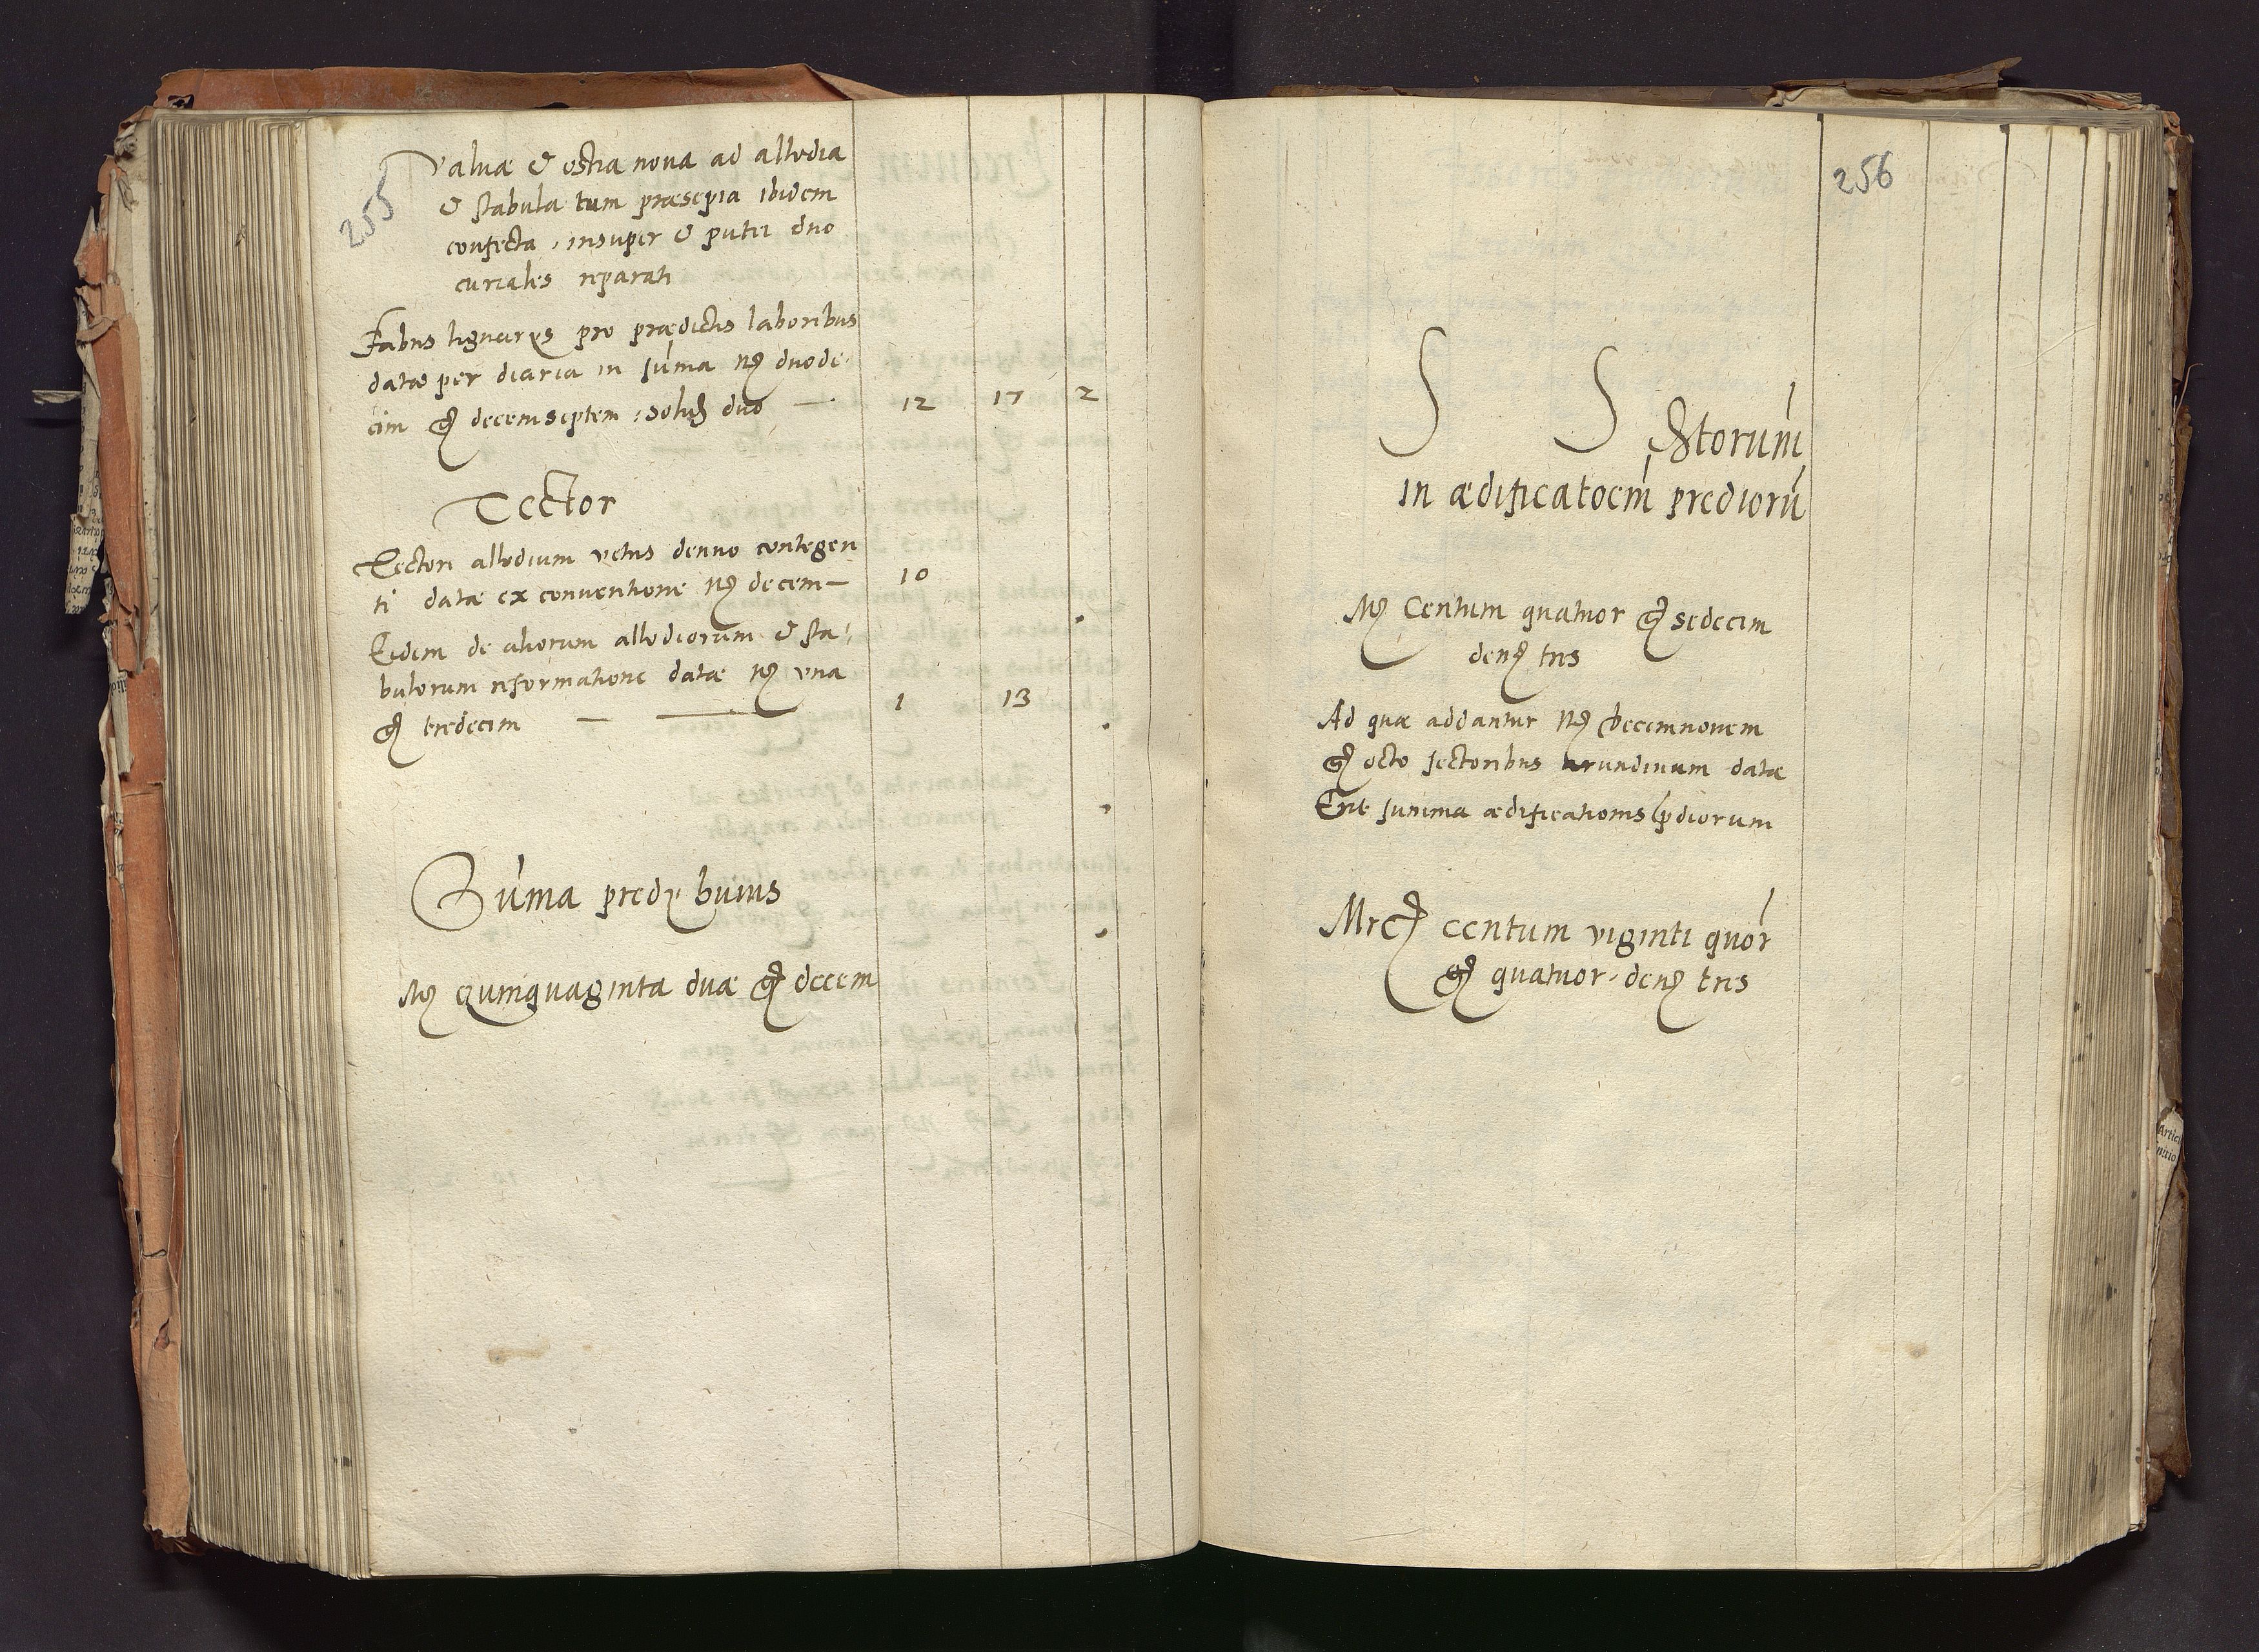 255
Valuæ & ostia noua ad allodia
& stabula tum præsepia ibidem
confecta, insuper & putei duo
curiales reparati
Fabris lignarijs pro prædictis laboribus
datæ per diaria in suma mr duode
cim gr decemseptem, solid duo — 12 17 2
Tector
Tectori allodium vetus denuo contegen
ti datæ ex conuentione mr decem — 10
Eidem de aliorum allodiorum & sta
bulorum reformatione datæ mr vna
gr tredecim — — 1 13
Suma predij huius
Mr quinquaginta duæ gr decem
256
S S Exptorum
in ædificatoem predioru
Mr Centum quatuor gr sedecim
den tres
Ad quæ addantur mr decemnouem
gr octo sectoribus arundinum datæ
Erit summa ædificationis prdiorum
Mrc centum viginti quor
gr quatuor, den tres